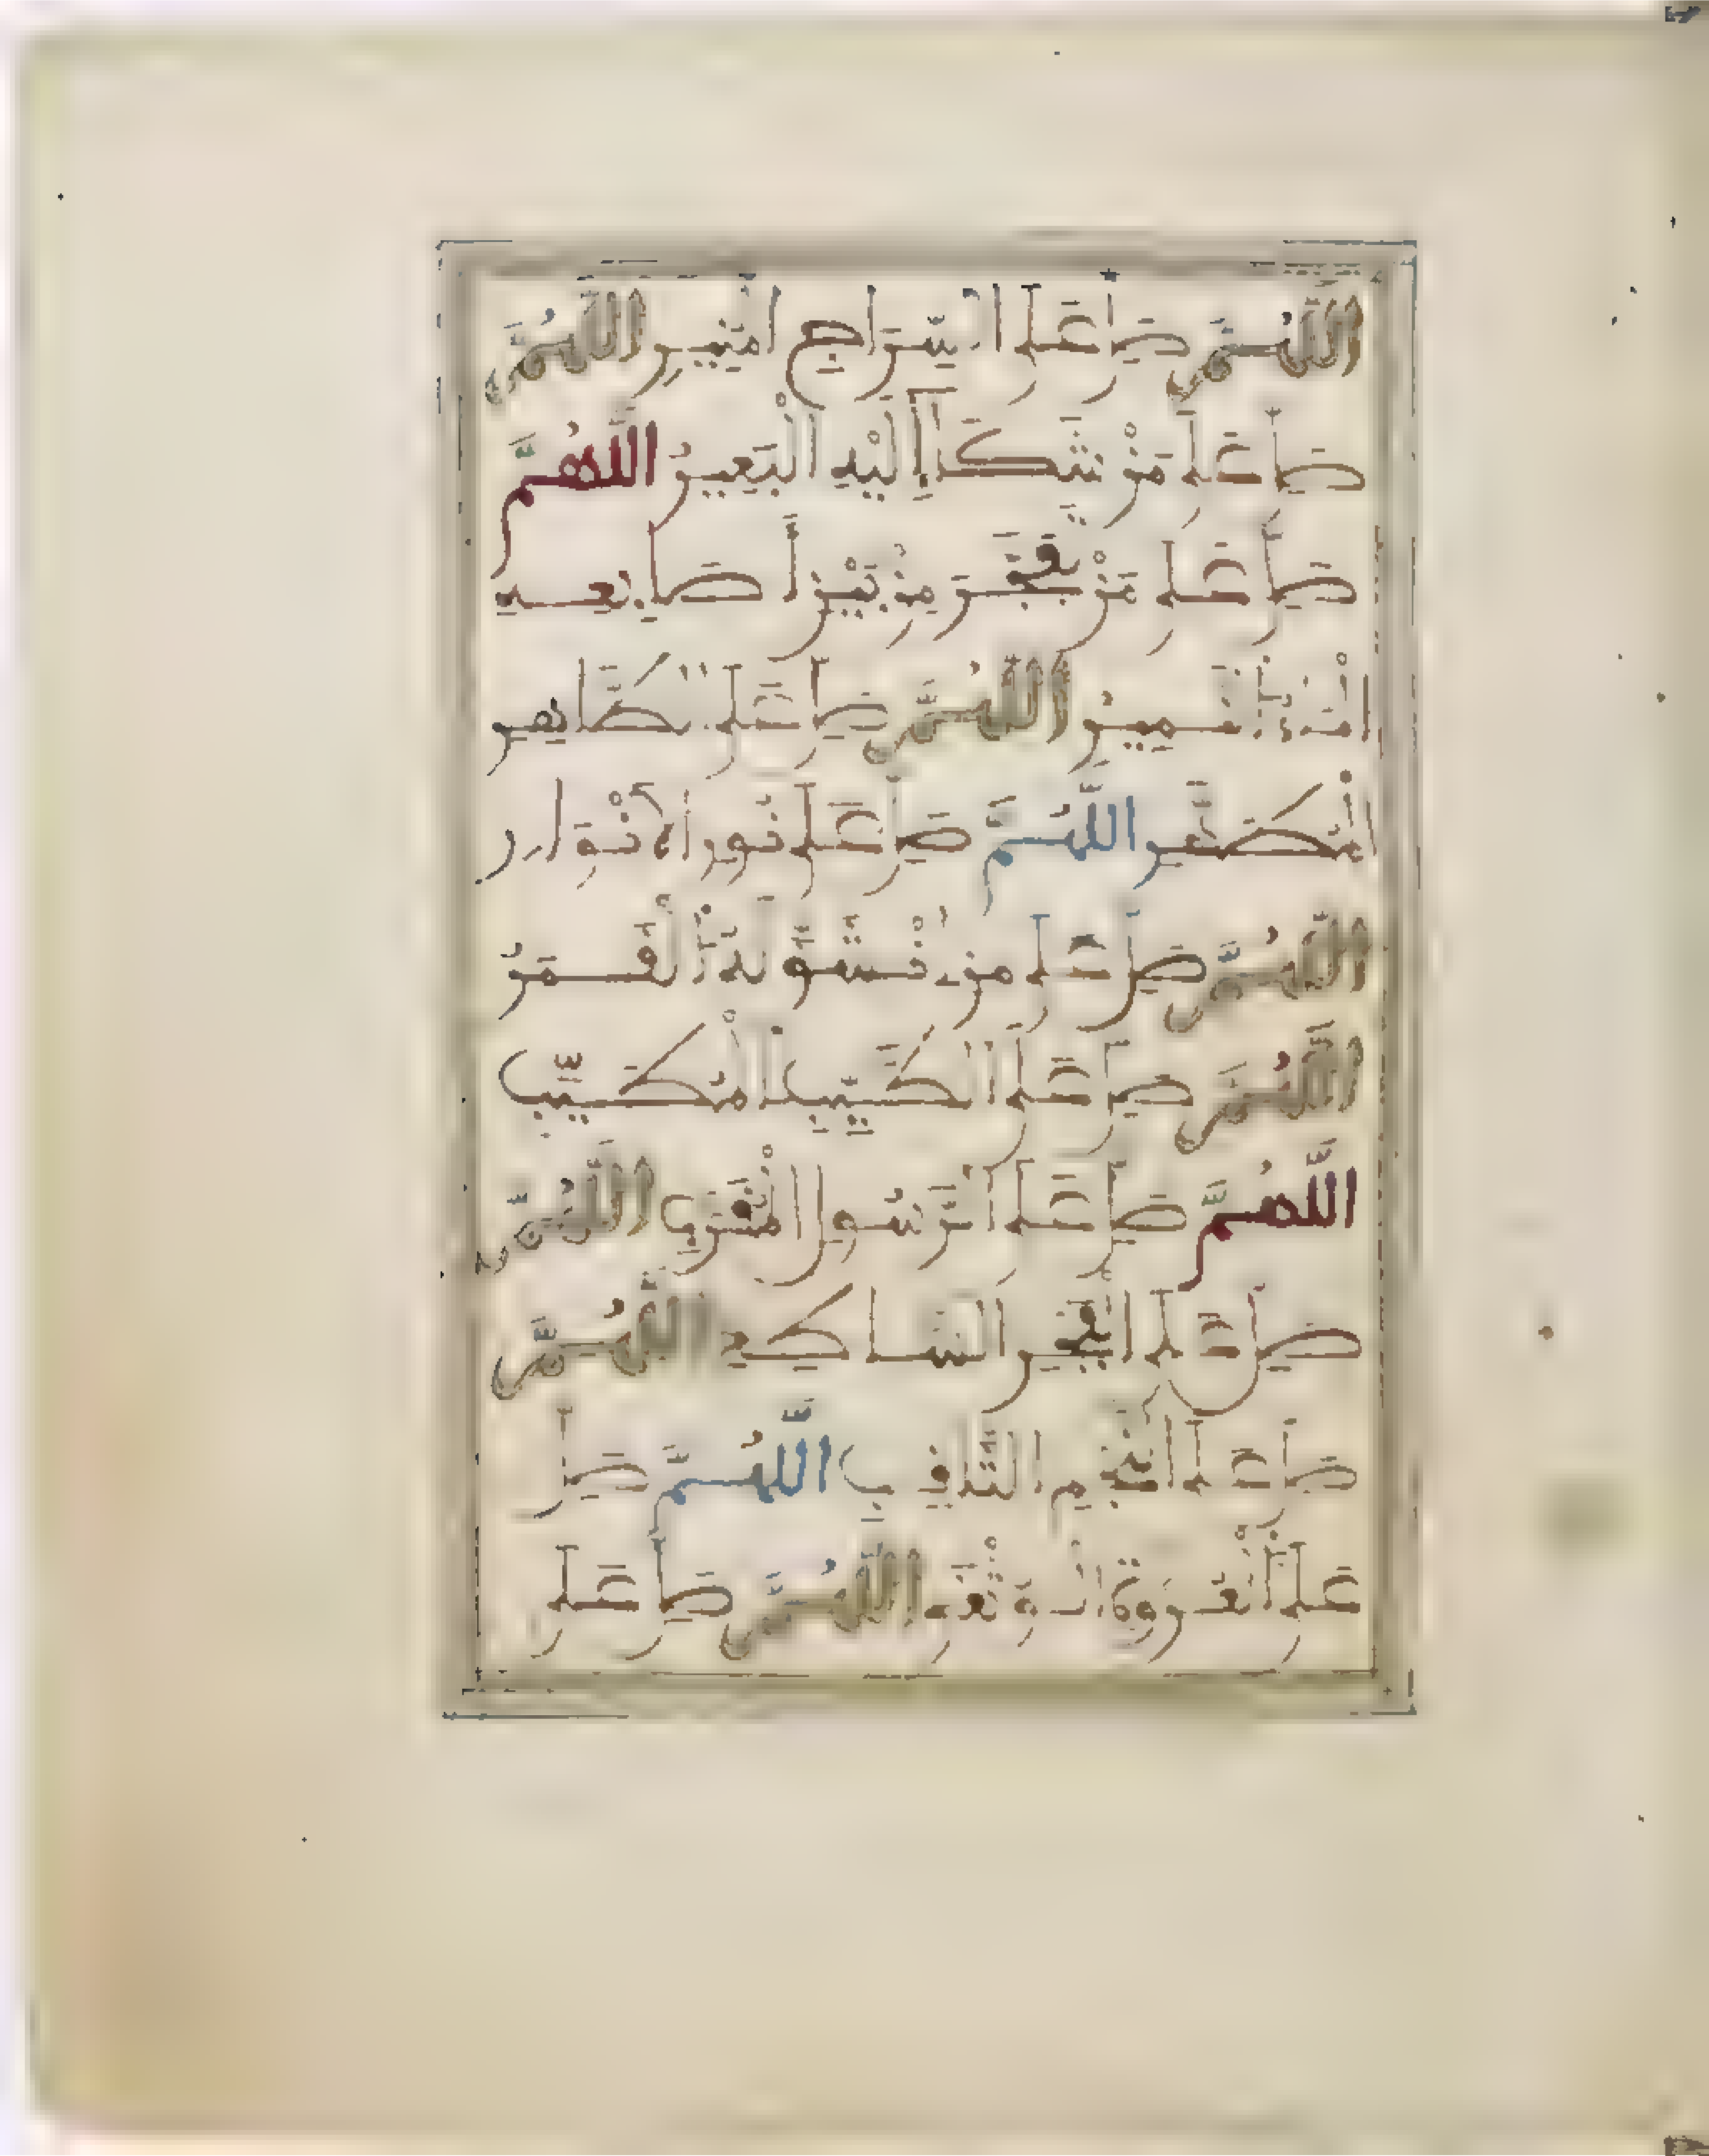 اللَّهُمَّ صَلِّ عَلَى السِّرَاجِ الْمُنِيرِ اللَّهُمَّ
صَلِّ عَلَى مَنْ شَكَا إِلَيْهِ الْبَعِيرُ اللَّهُمَّ
صَلِّ عَلَى مَنْ تَفَجَّرَ مِنْ بَيْنِ أَصَابِعِهِ
الْمَاءُ النَّمِيرُ اللَّهُمَّ صَلِّ عَلَى الطَّاهِرِ
الْمُطَهَّرِ اللَّهُمَّ صَلِّ عَلَى نُورِ الْأَنْوَارِ
اللَّهُمَّ صَلِّ عَلَى مَنِ انْشَقَّ لَهُ الْقَمَرُ
اللَّهُمَّ صَلِّ عَلَى الطَّيِّبِ الْمُطَيَّبِ
اللَّهُمَّ صَلِّ عَلَى الرَّسُولِ الْمُقَرَّبِ اللَّهُمَّ
صَلِّ عَلَى الْفَجْرِ السَّاطِعِ اللَّهُمَّ
صَلِّ عَلَى النَّجْمِ الثَّاقِبِ اللَّهُمَّ صَلِّ
عَلَى الْعُرْوَةِ الْوُثْقَى اللَّهُمَّ صَلِّ عَلَى